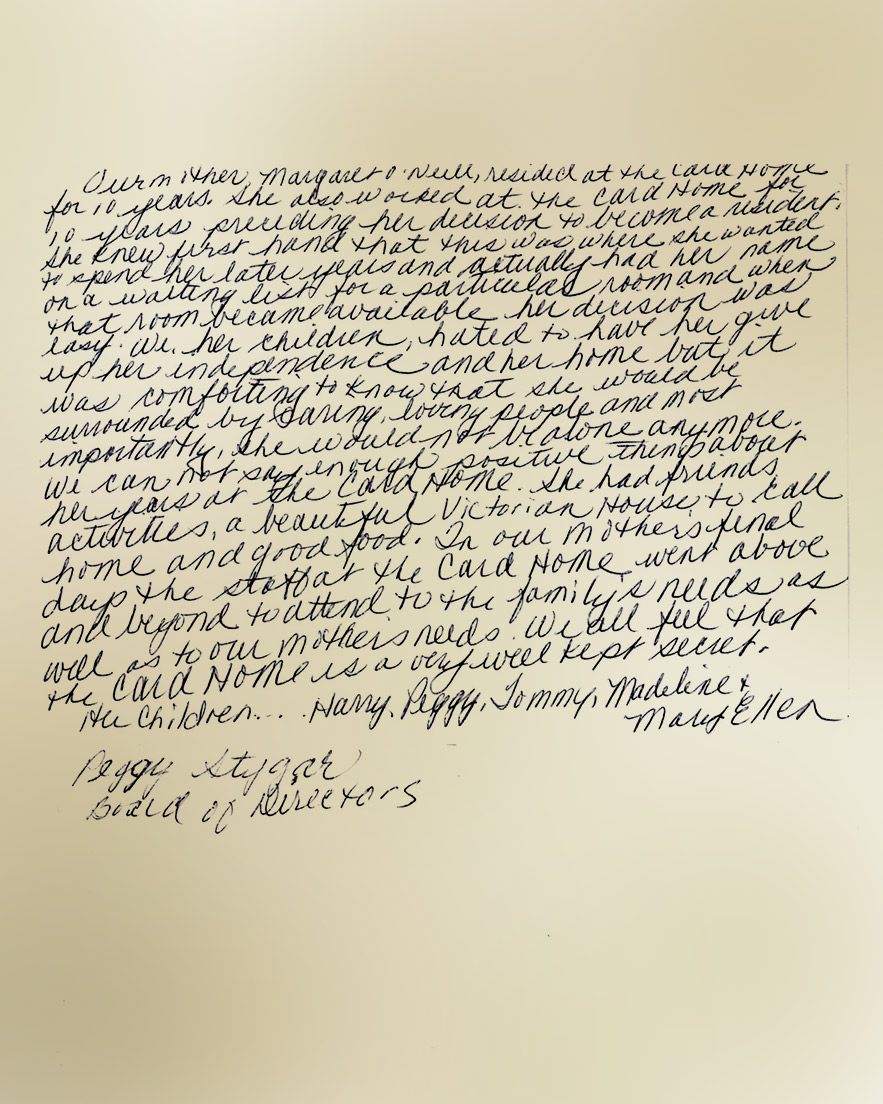 Our mother, Margaret O'Neill, resided at the Card Home
for 10 years. She also worked at the Card Home for
10 years preceding her decision to become a resident.
She knew first hand that this was where she wanted
to spend her later years and actually had her name
on a waiting list for a particular room and when
that room became available her decision was
easy. We, her children, hated to have her give
up her independence and her home but it
was comforting to know that she would be
surrounded by caring, loving people and most
importantly, she would not be alone anymore.
We can not say enough positive things about
her years at the Card Home. She had friends,
activities, a beautiful Victorian House to call
home and good food. In our mothers final
days the staff at the Card Home went above
and beyond to attend to the family's needs as
well as to our mother's needs. We all feel that
the Card Home is a very well kept secret.
Her Children... Harry, Peggy, Tommy, Madeline &
Mary Ellen
Peggy Stygar
Board of Directors